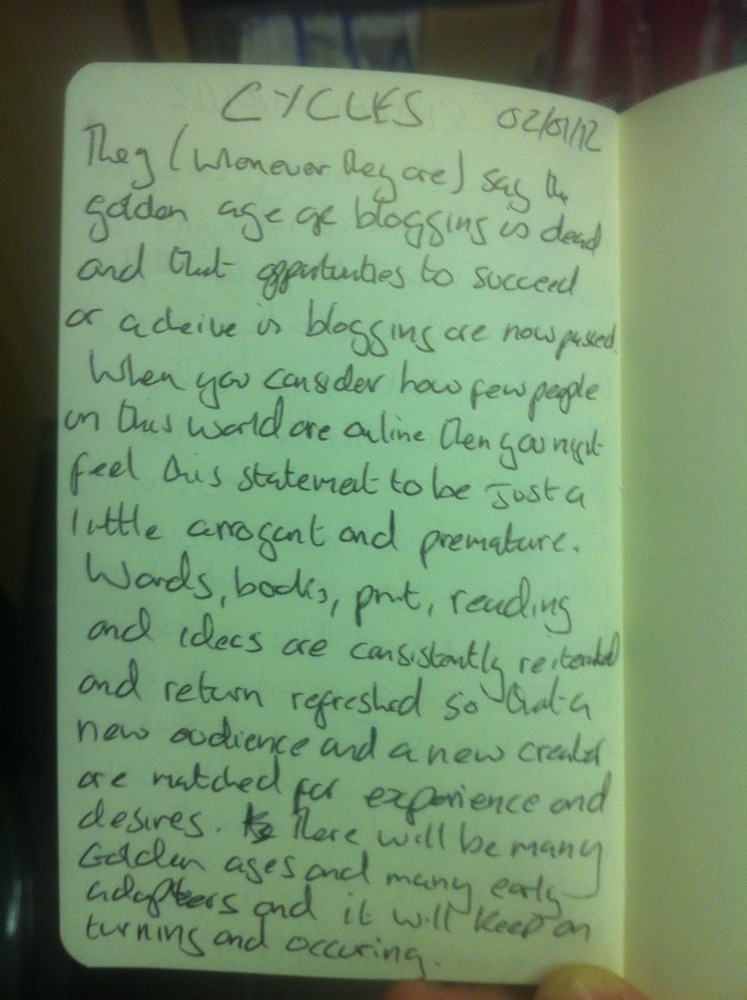 CYCLES 02/01/12
They (whomever they are) say the
golden age of blogging is dead
and that opportunities to succeed
or acheive in blogging are now passed.
When you consider how few people
in this world are online then you might
feel this statement to be just a
little arrogant and premature.
Words, books, print, reading
and ideas are consistently reiterated
and return refreshed so that a
new audience and a new creator
are matched for experience and
desires. There will be many
Golden ages and many early
adopters and it will keep on
turning and occuring.